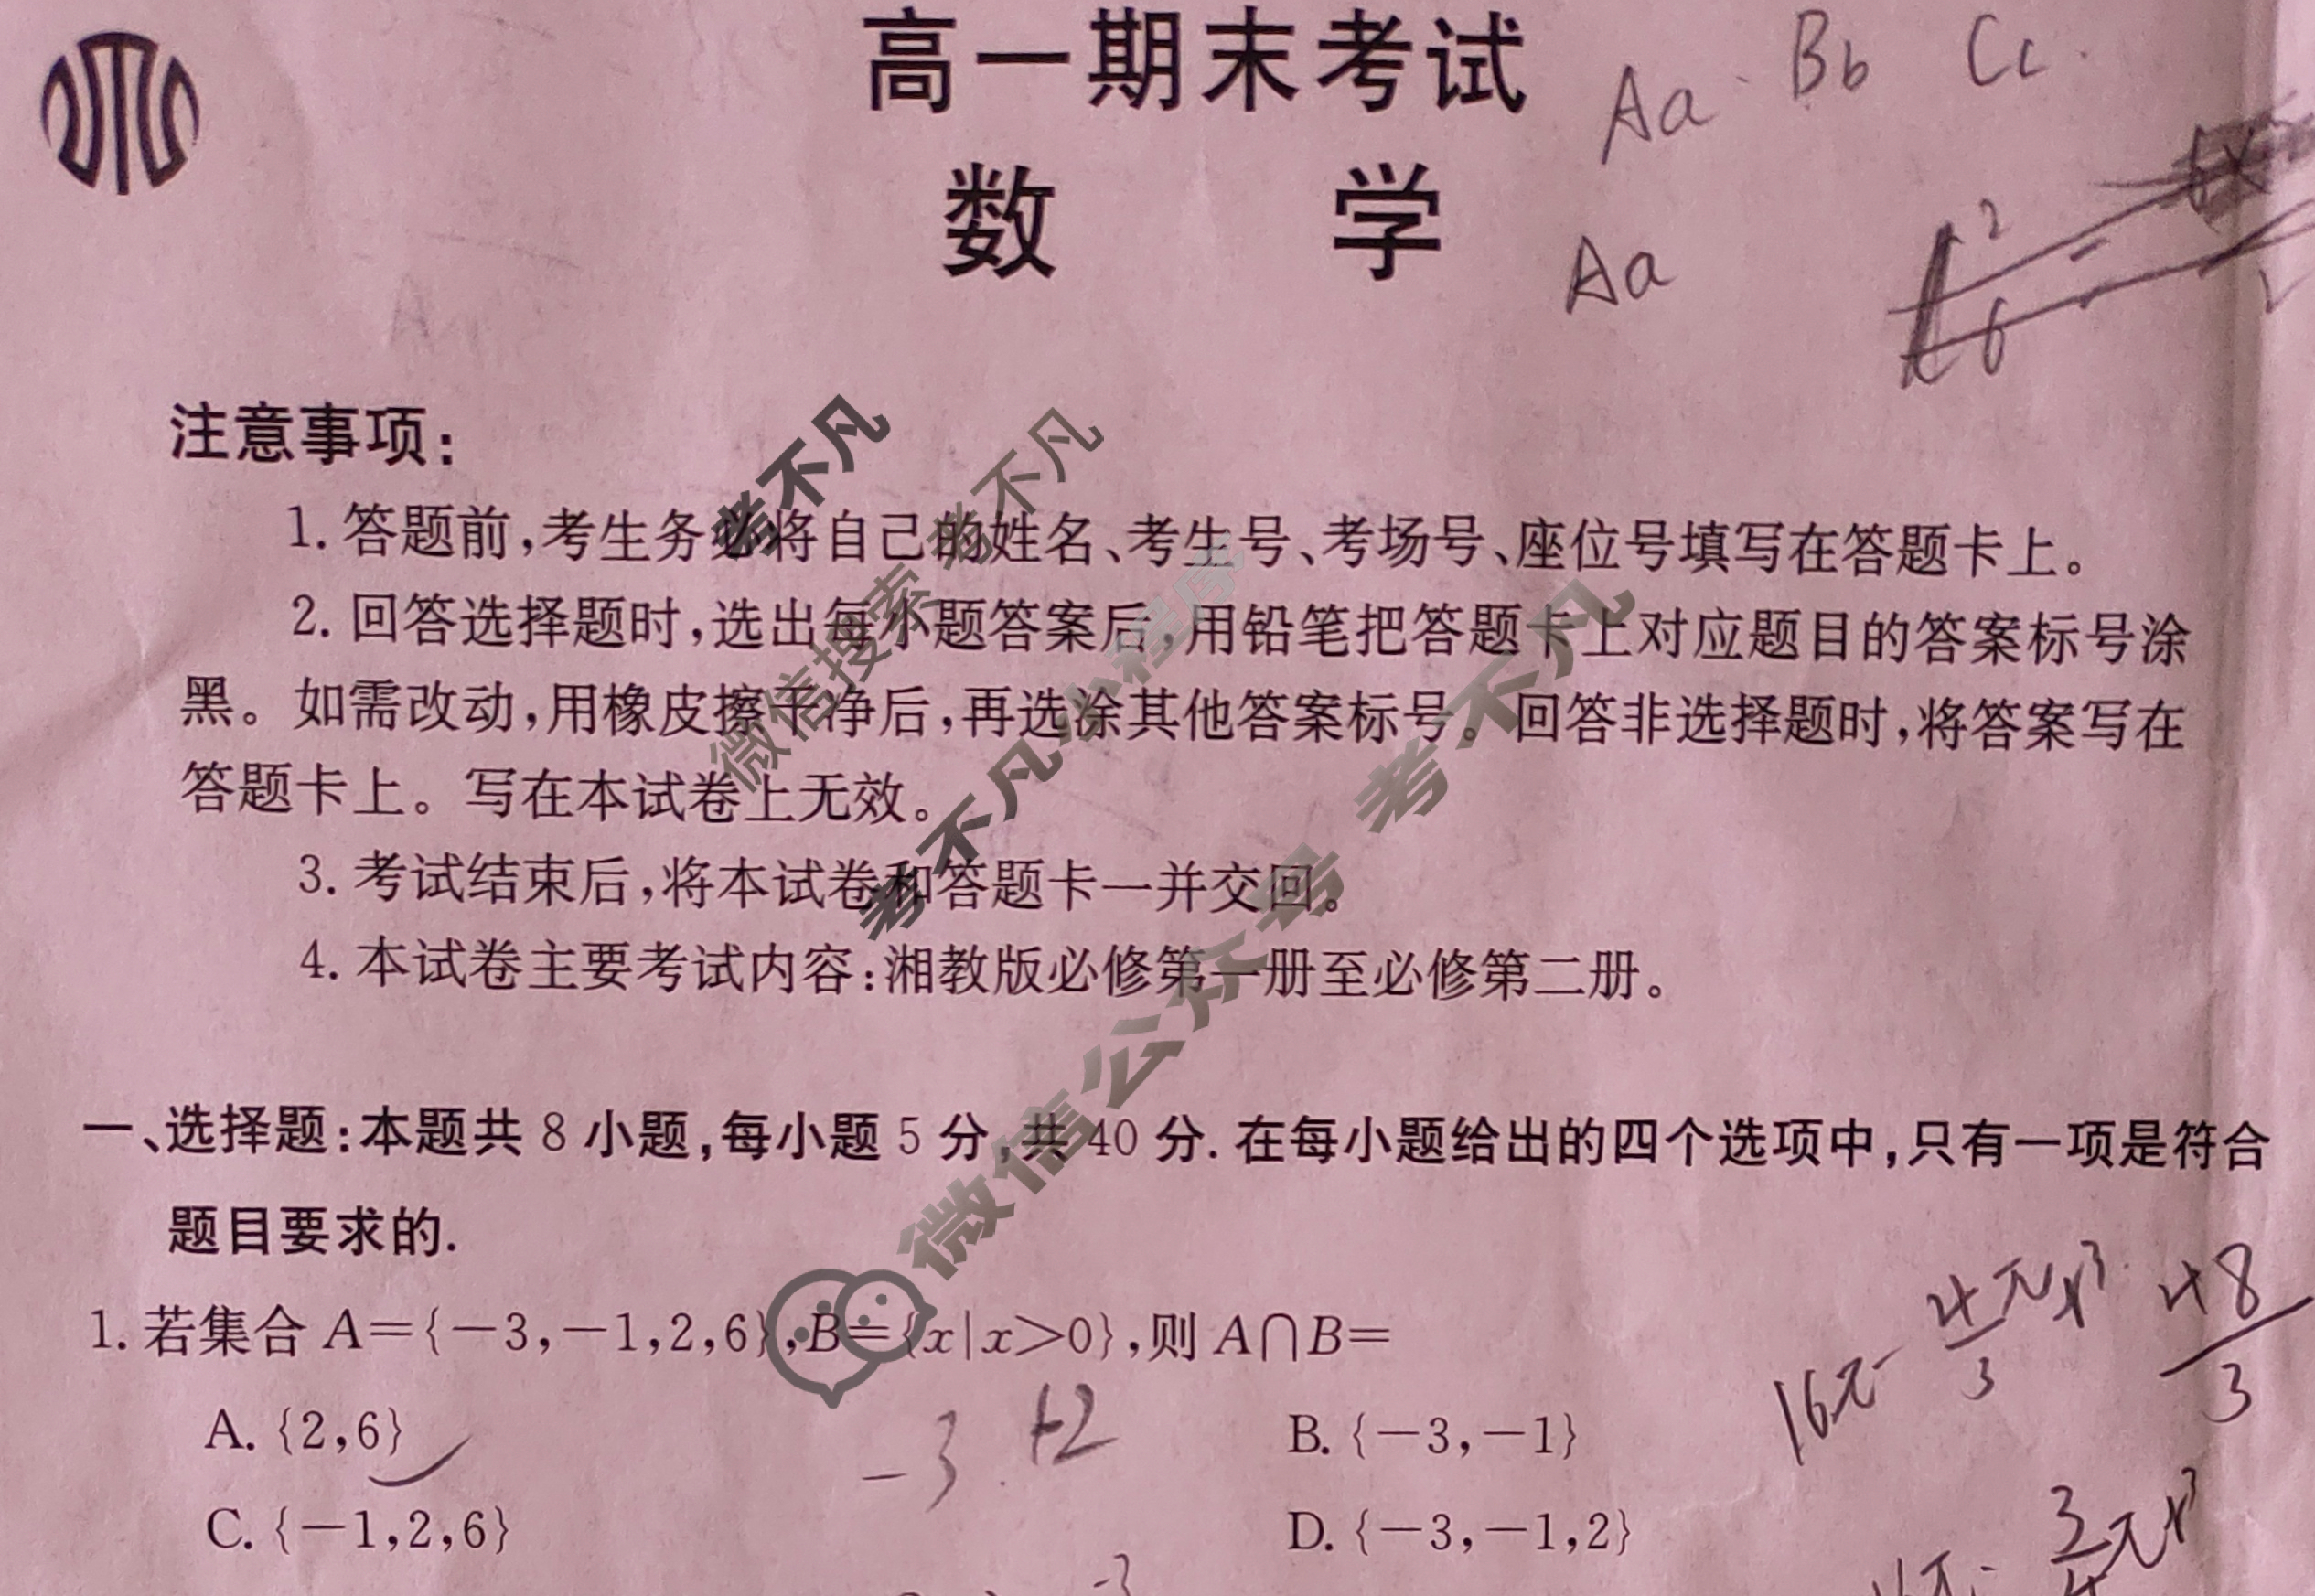 高一期末考试
Aa Bb Cc
数 学
Aa
注意事项:
1. 答题前,考生务必将自己的姓名、考生号、考场号、座位号填写在答题卡上。
2. 回答选择题时,选出每小题答案后,用铅笔把答题卡上对应题目的答案标号涂
黑。如需改动,用橡皮擦干净后,再选涂其他答案标号。回答非选择题时,将答案写在
答题卡上。写在本试卷上无效。
3. 考试结束后,将本试卷和答题卡一并交回。
4. 本试卷主要考试内容:湘教版必修第一册至必修第二册。
考不凡
微信搜索 考不凡
考不凡小程序
微信公众号 考不凡
一、选择题:本题共 8 小题,每小题 5 分,共 40 分. 在每小题给出的四个选项中,只有一项是符合
题目要求的.
1. 若集合 A={-3,-1,2,6},B={x|x>0},则 A∩B=
A. {2,6}
B. {-3,-1}
C. {-1,2,6}
D. {-3,-1,2}
-3 +2
16π- 4/3 πr³
48/3